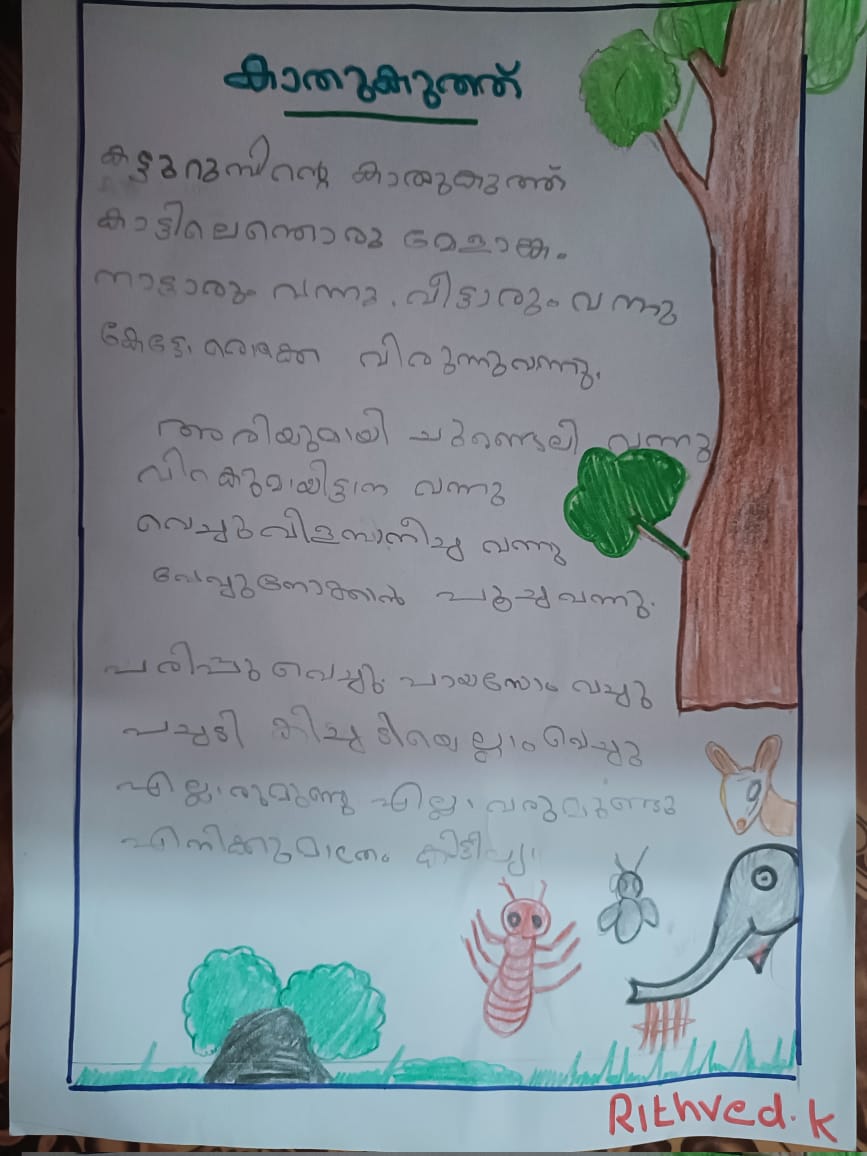 കാതുകുത്ത്
കട്ടുറുമ്പിന്റെ കാതുകുത്ത്
കാട്ടിലെന്തൊരു മേളാങ്കം
നാട്ടാരും വന്നു. വീട്ടാരും വന്നു
വിരുന്നുവന്നു.
അരിയുമായി ചുണ്ടെലി വന്നു
വിറകുമായിട്ടാന വന്നു
വെച്ചുവിളമ്പാനീച്ച വന്നു
വേവുനോക്കാൻ പൂച്ചവന്നു.
പരിപ്പു വെച്ചു പായസോം വച്ചു
പച്ചടി കിച്ചടിയെല്ലാം വെച്ചു
എല്ലാരുമുണ്ടു എല്ലാവരുമുണ്ടു
എനിക്കുമാത്രം
Rithved.k